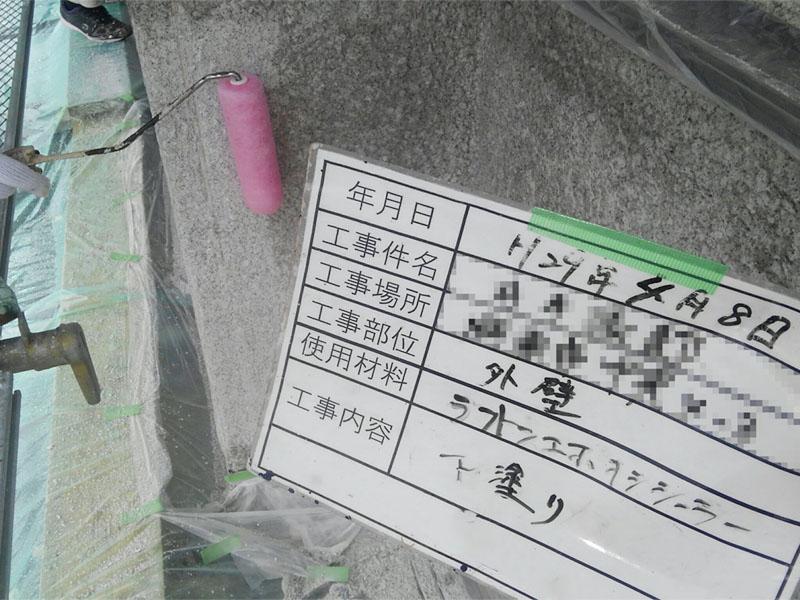 年月日 H29年4月8日
工事件名
工事場所
工事部位 外壁
使用材料 ラフトンエポサンシーラー
工事内容 下塗り